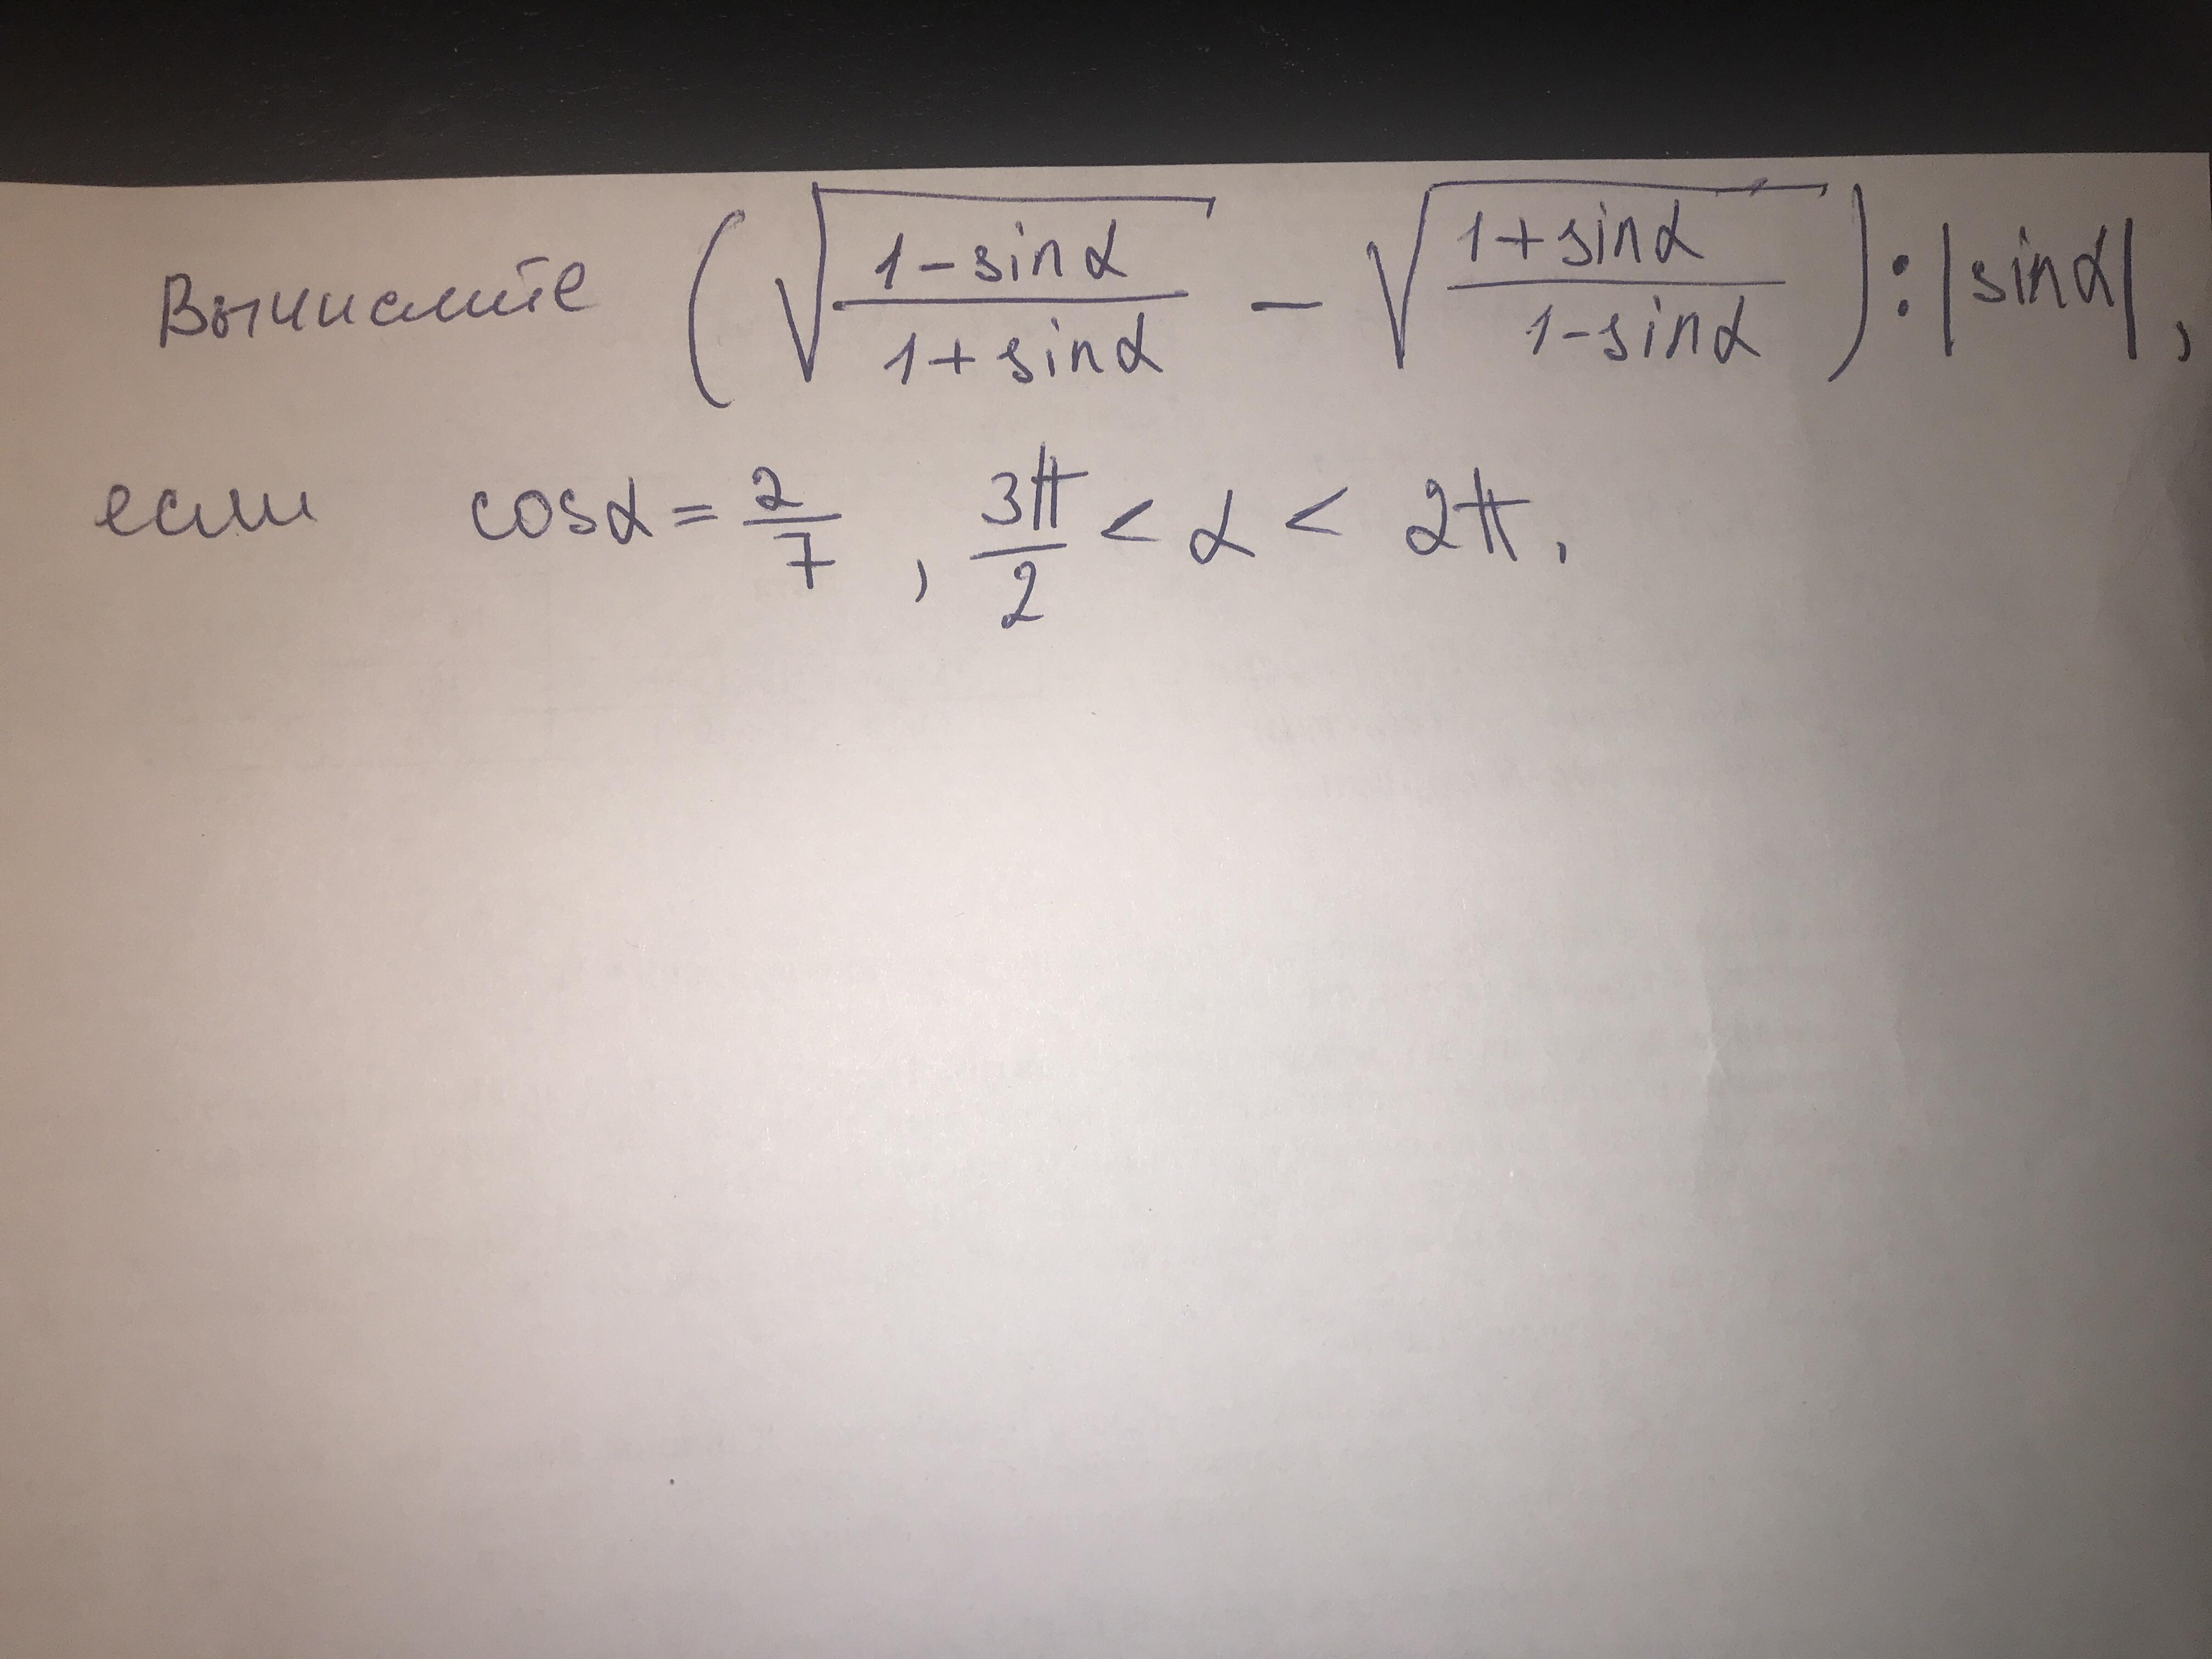 Вычислите (√((1-sinα)/(1+sinα)) - √((1+sinα)/(1-sinα))) : |sinα|,
если cosα = 2/7, 3π/2 < α < 2π.